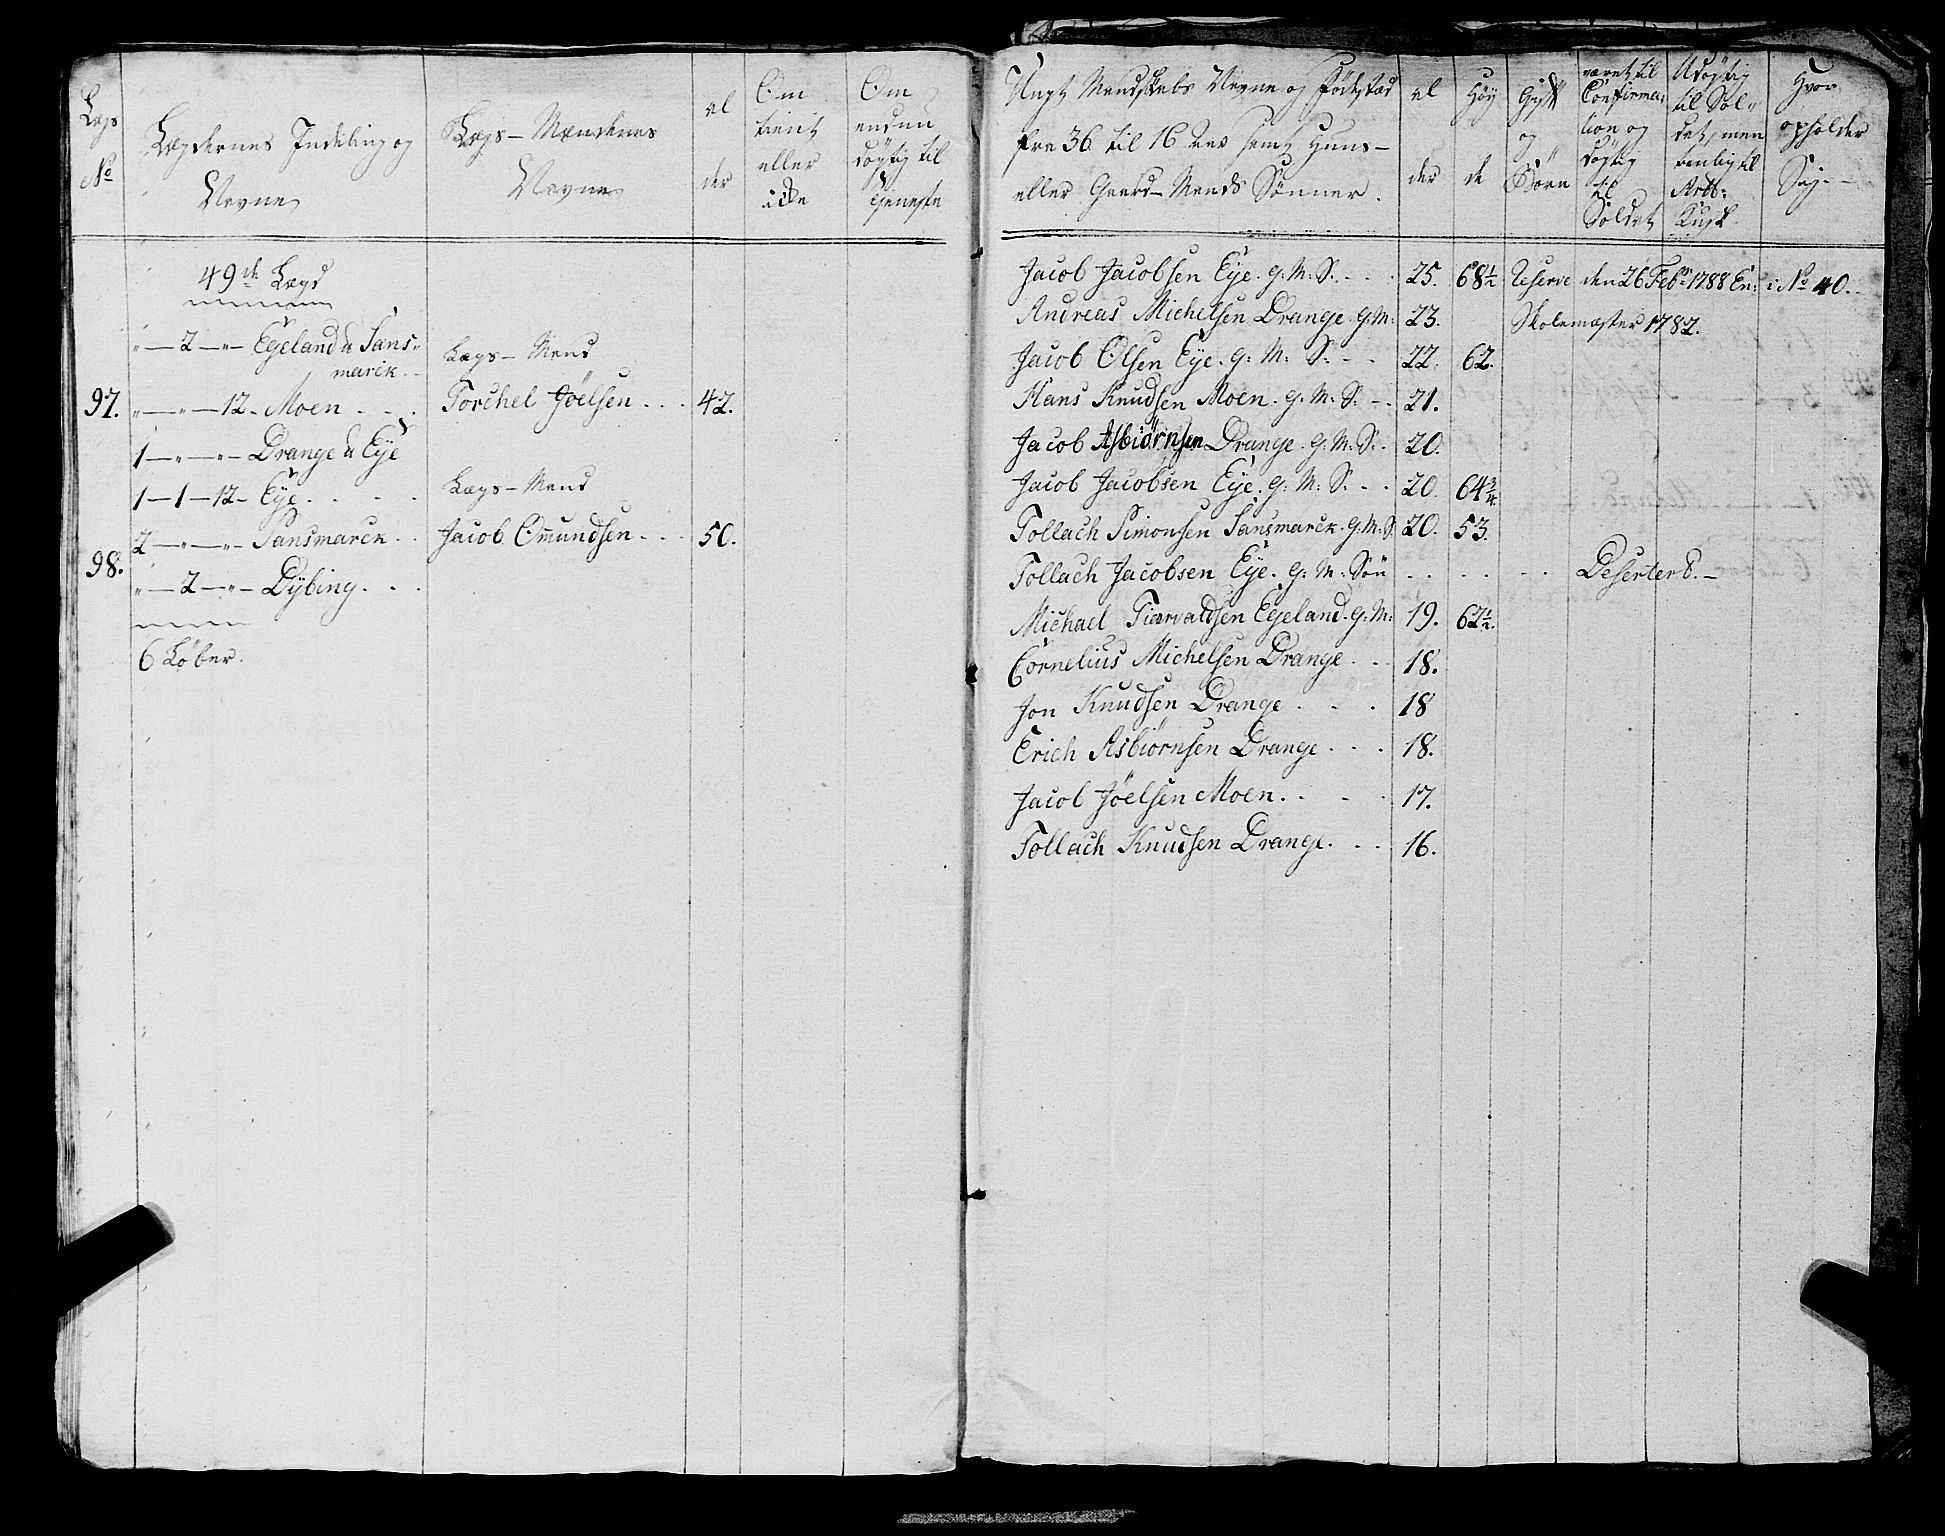 Lægs No
Lægdernes Indeling og Nevne
Lægs-Mændenes Nevne
al der
Om tient eller icke
Om endnu døgtig til Tieneste
49de Lægd
"-2-"- Egeland & Sans-
marck
Lægs-Mend
97. "-"-12- Moen . . . Torchel Jöelsen . . . 42.
1-"-"- Drange & Eÿe
1-1-12- Eÿe. . . . Lægs-Mend
2-"-"- Sansmarck . . Jacob Omundsen . . . 50.
98. "-2-"- Dÿbing . . .
6 Løber.
Ungt Mandskabs Nevne og Födestæd
fra 36 til 16 Aar samt Huus-
eller Gaard-Mends Sönner.
al der
Höy de
Gift og Börn
været til Confirmation og døgtig til Soldat
Udøgtig til Soldat, men tienlig til
Hvor opholder Sig.
Jacob Jacobsen Eÿe. G. M. S. - - . 25. 68½ Reserve den 26 Febr 1788 En: : No 40.
Andreas Michelsen Drange. G. M: 23. Skolemæster 1782.
Jacob Olsen Eÿe. G: M: S: - - 22. 62.
Hans Knudsen Moen. G: M: S. - . 21.
Jacob Asbiörnsen Drange. G: M: S. . 20.
Jacob Jacobsen Eÿe. G: M: S. - . 20. 64¾
Tollach Simonsen Sansmarck. G. M. S. 20. 53.
Tollach Jacobsen Eÿe. G: M: Sön . . . . . Desertered. -
Michael Tiærvaldsen Egeland. G: M: 19. 62½.
Cornelius Michelsen Drange . . . 18.
Jon Knudsen Drange . . . 18
Erich Asbiörnsen Drange . . . 18.
Jacob Jöelsen Moen . . - . 17.
Tollach Knudsen Drange . . . 16.